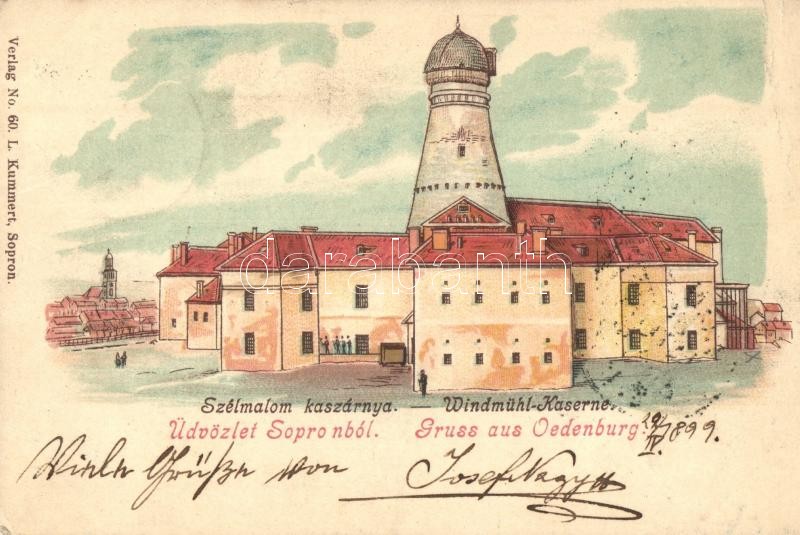 Verlag No. 60. L. Kummert, Sopron.
darabanth
Szélmalom kaszárnya. — Windmühl-Kaserne.
Üdvözlet Sopronból. Gruss aus Oedenburg.
29/IV 1899.
Viele Grüße von Josef Nagy